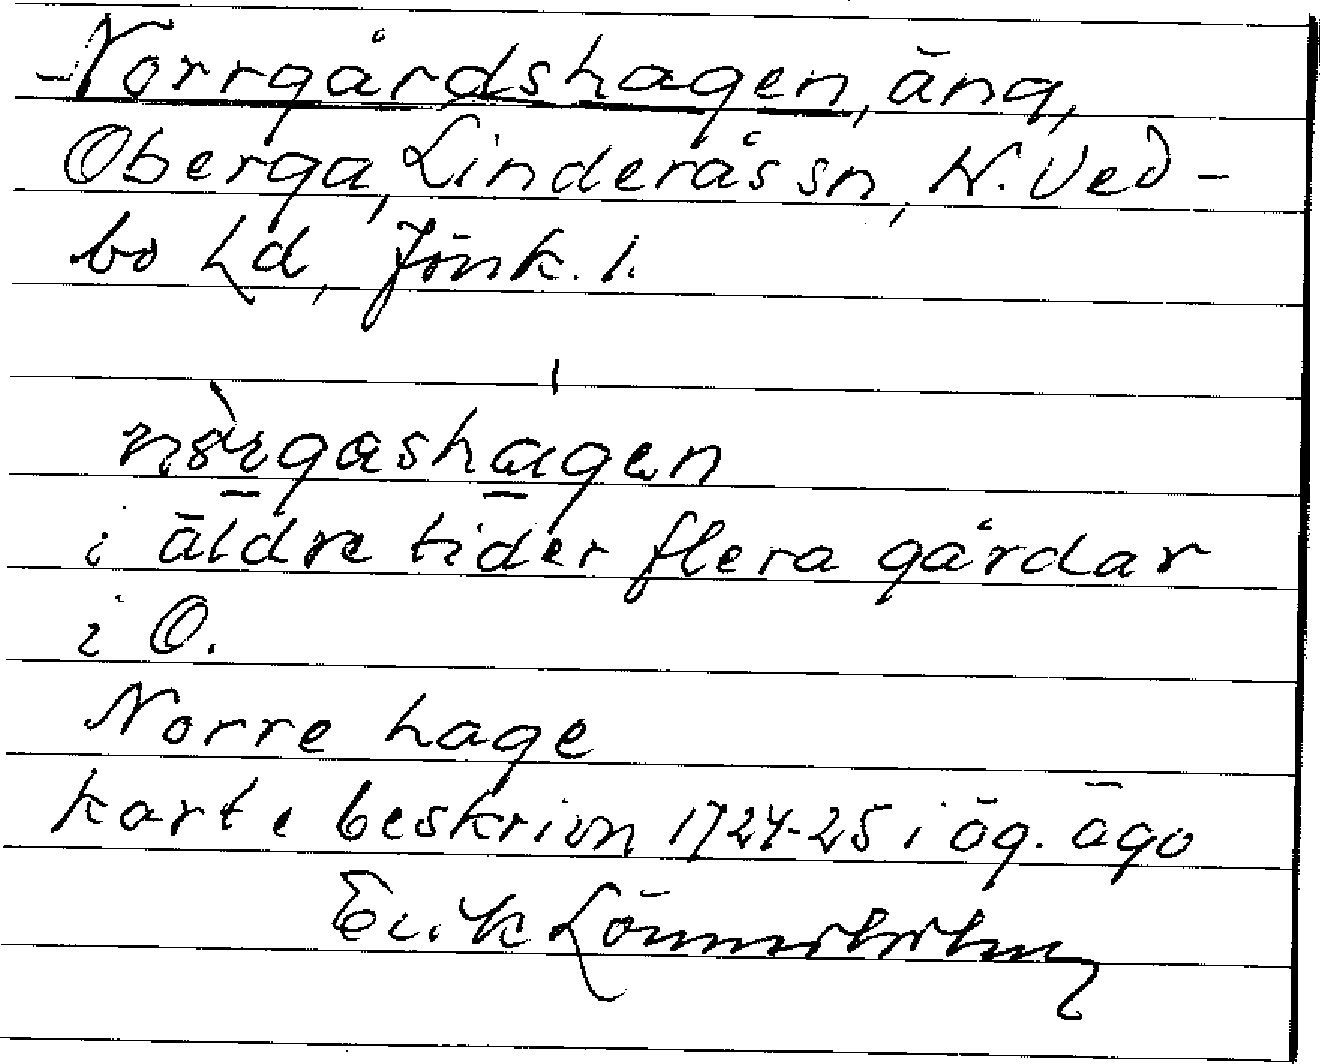 Norrgårdshagen, äng,
Oberga, Linderås sn, N. Ved-
bo hd, Jönk. l.
nòrgashagen
i äldre tider flera gårdar
i O.
Norre hage
kart e beskrivn 1724-25 i äg. ägo
Erik Lönnerholm